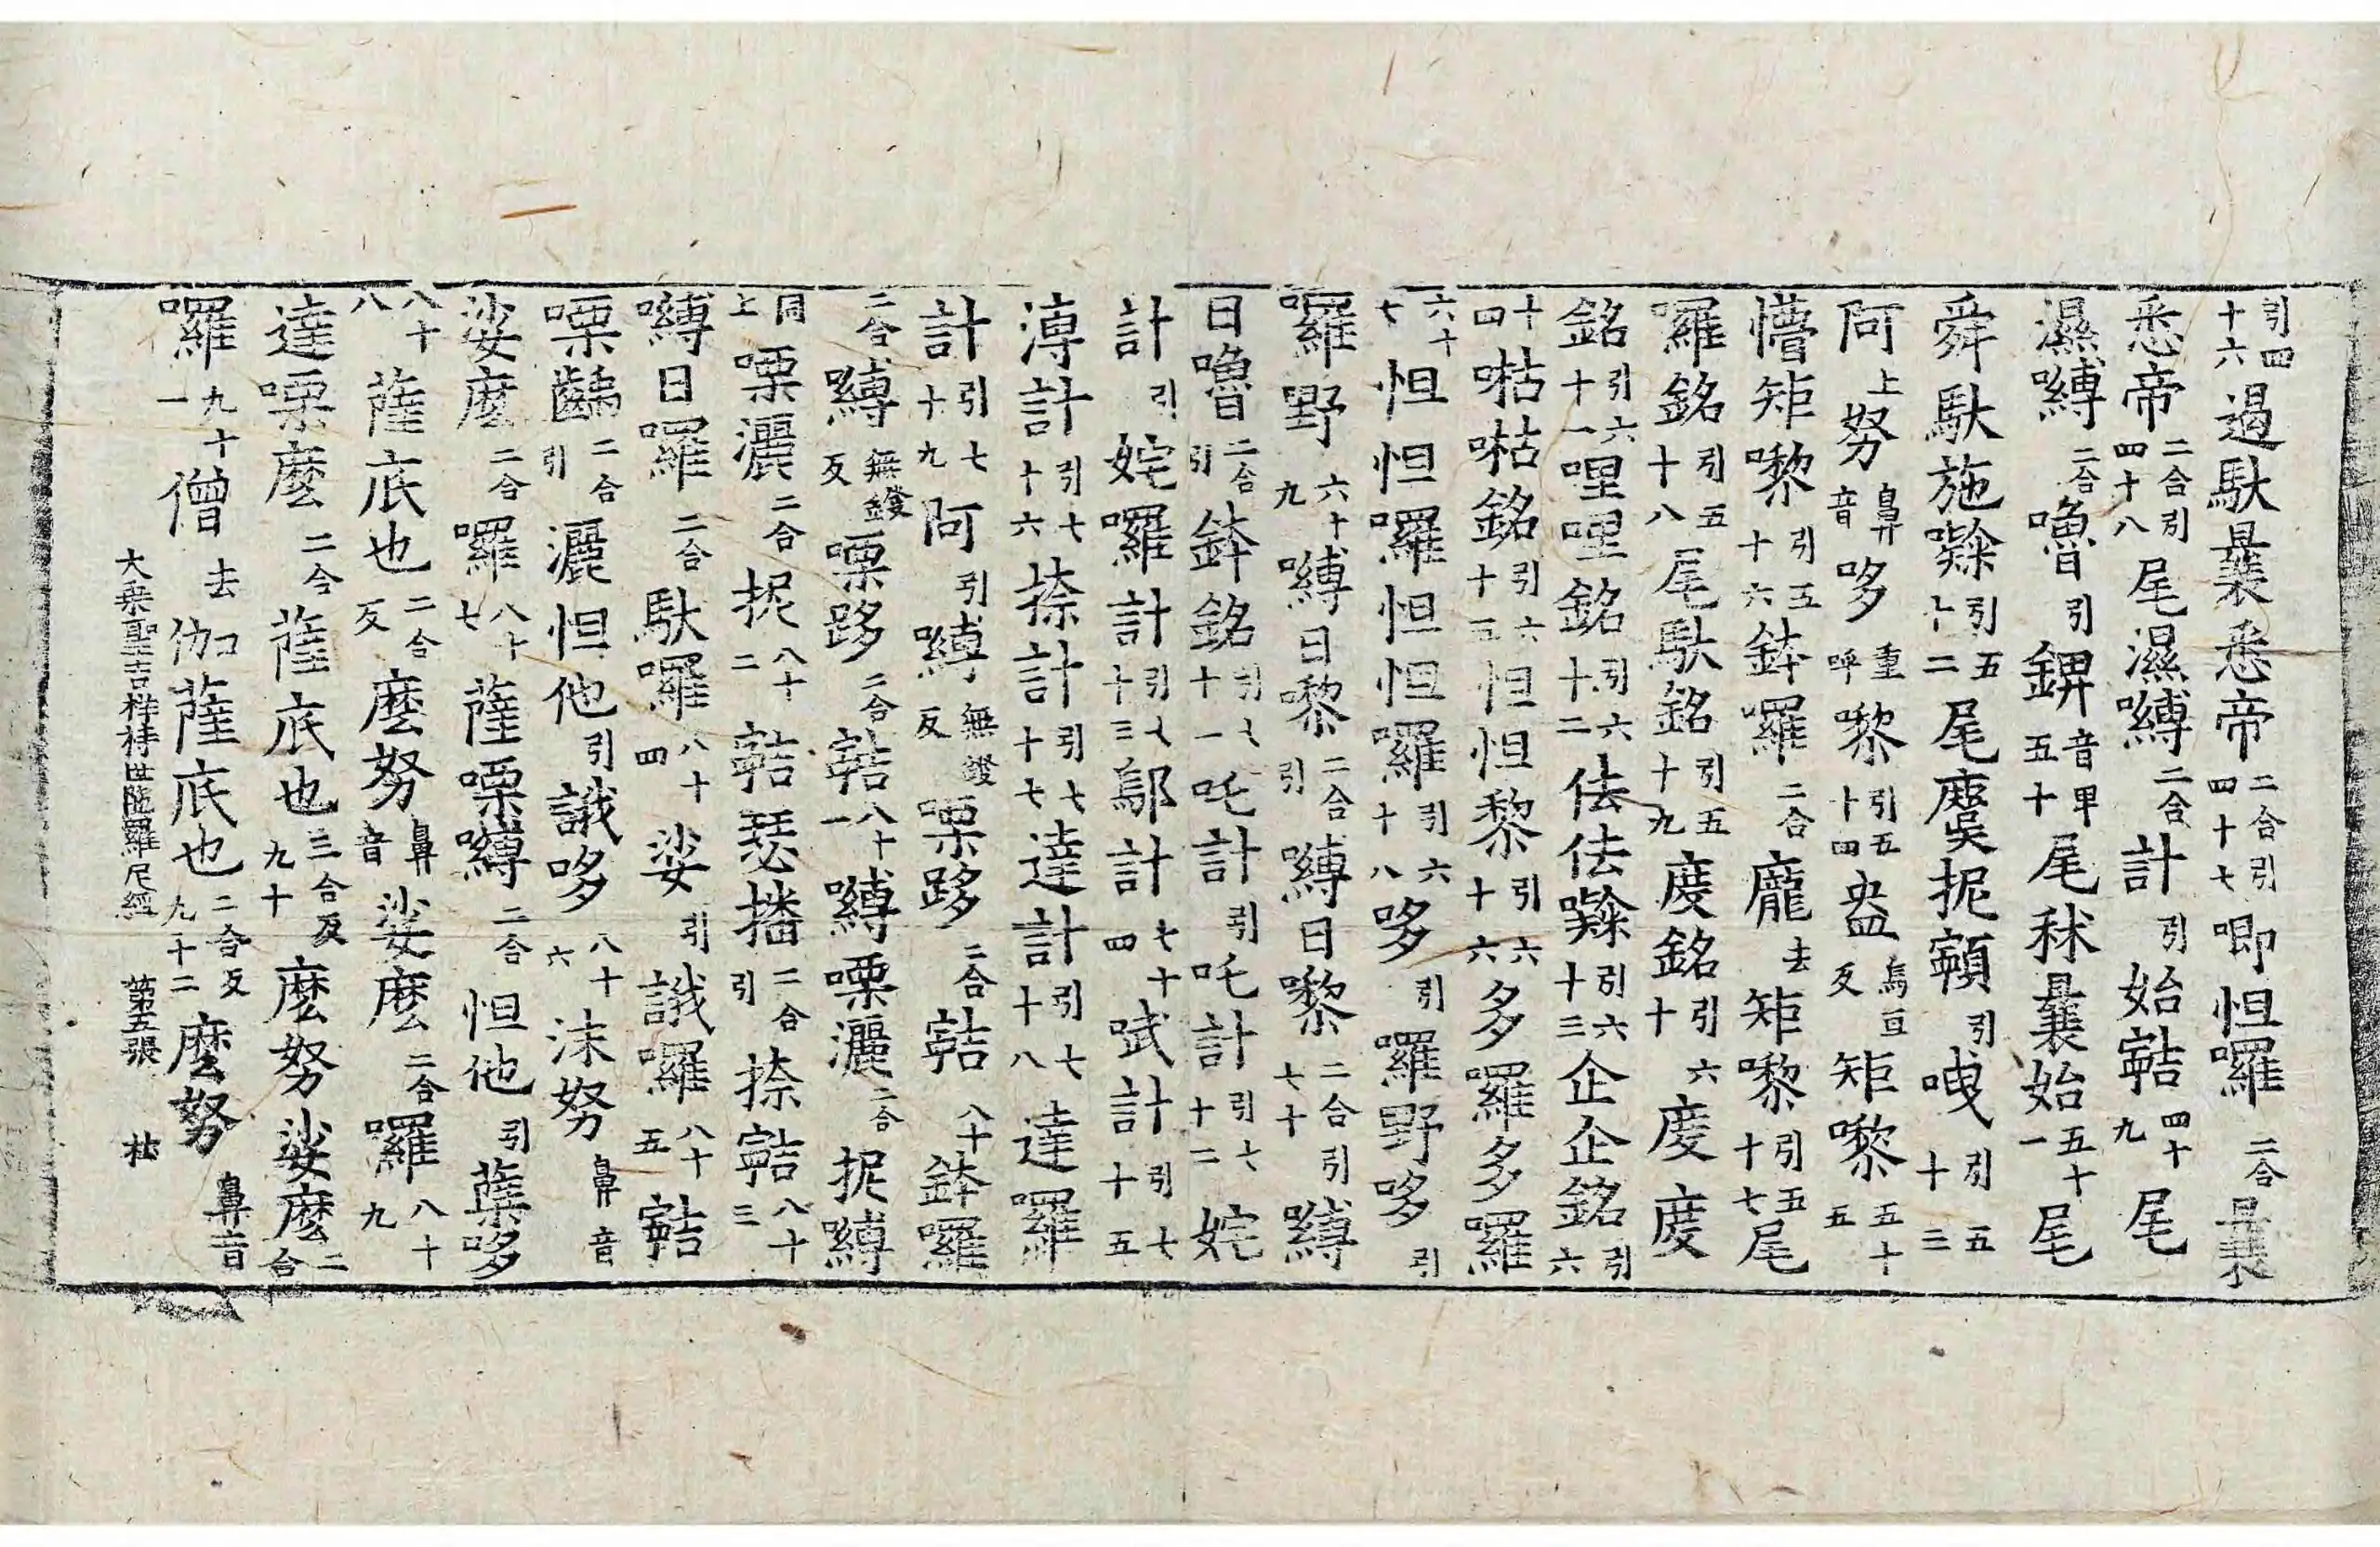 引四十六遏馱曩悉帝二合引四十七唧怛囉二合曩
悉帝二合引四十八尾濕嚩二合計引始𩕳四十九尾
濕嚩二合嚕引錍音甲五十尾秫曩始五十一尾
舜馱施㘑引五十二尾虞抳𩕳引曳引五十三
阿上努鼻音哆重呼㘑引五十四盎烏亘反矩㘑五十五
懵矩㘑引五十六鉢囉二合龐去矩㘑引五十七尾
囉銘引五十八尾馱銘引五十九度銘引六十度度
銘引六十一哩哩銘引六十二佉佉㘑引六十三企企銘引六
十四枯枯銘引六十五怛怛黎引六十六多羅多羅
六十七怛怛囉怛怛囉引六十八哆引羅野哆引
囉野六十九嚩日㘑二合引嚩日㘑二合引七十嚩
日嚕二合引鉢銘引七十一吒計引吒計引七十二姹
計引姹囉計引七十三鄔計七十四武計引七十五
漙計引七十六捺計引七十七達計引七十八達囉
計引七十九阿引嚩無鍐反㗚跢二合𩕳八十鉢囉
二合嚩無鍐反㗚跢二合𩕳八十一嚩㗚灑二合抳嚩
同上㗚灑二合抳八十二𩕳瑟播二合引捺𩕳八十三
嚩日囉二合馱囉八十四娑引誐囉八十五𩕳
㗚齲二合引灑怛他引誐哆八十六沫努鼻音
娑麽二合囉八十七薩㗚嚩二合怛他引蘖哆
八十八薩底也二合反麽努鼻音娑麽二合囉八十九
達㗚麽二合薩底也二合反九十麽努娑麽二合
囉九十一僧去伽薩底也二合反九十二麽努鼻音
大乘聖吉祥持世陁羅尼經 第五張